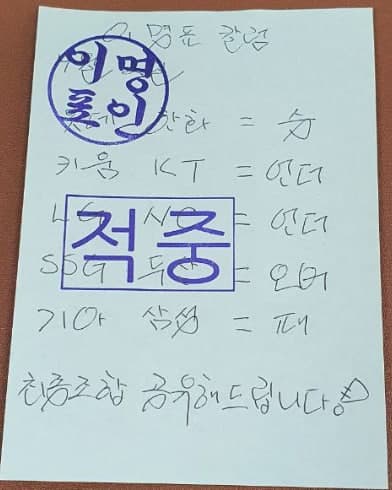 이명표 칼럼
이명
표인
한화 = 승
키움 KT = 언더
LG = 언더
적중
SSG 두산 = 오버
기아 삼성 = 패
최종조합 공유해드립니다